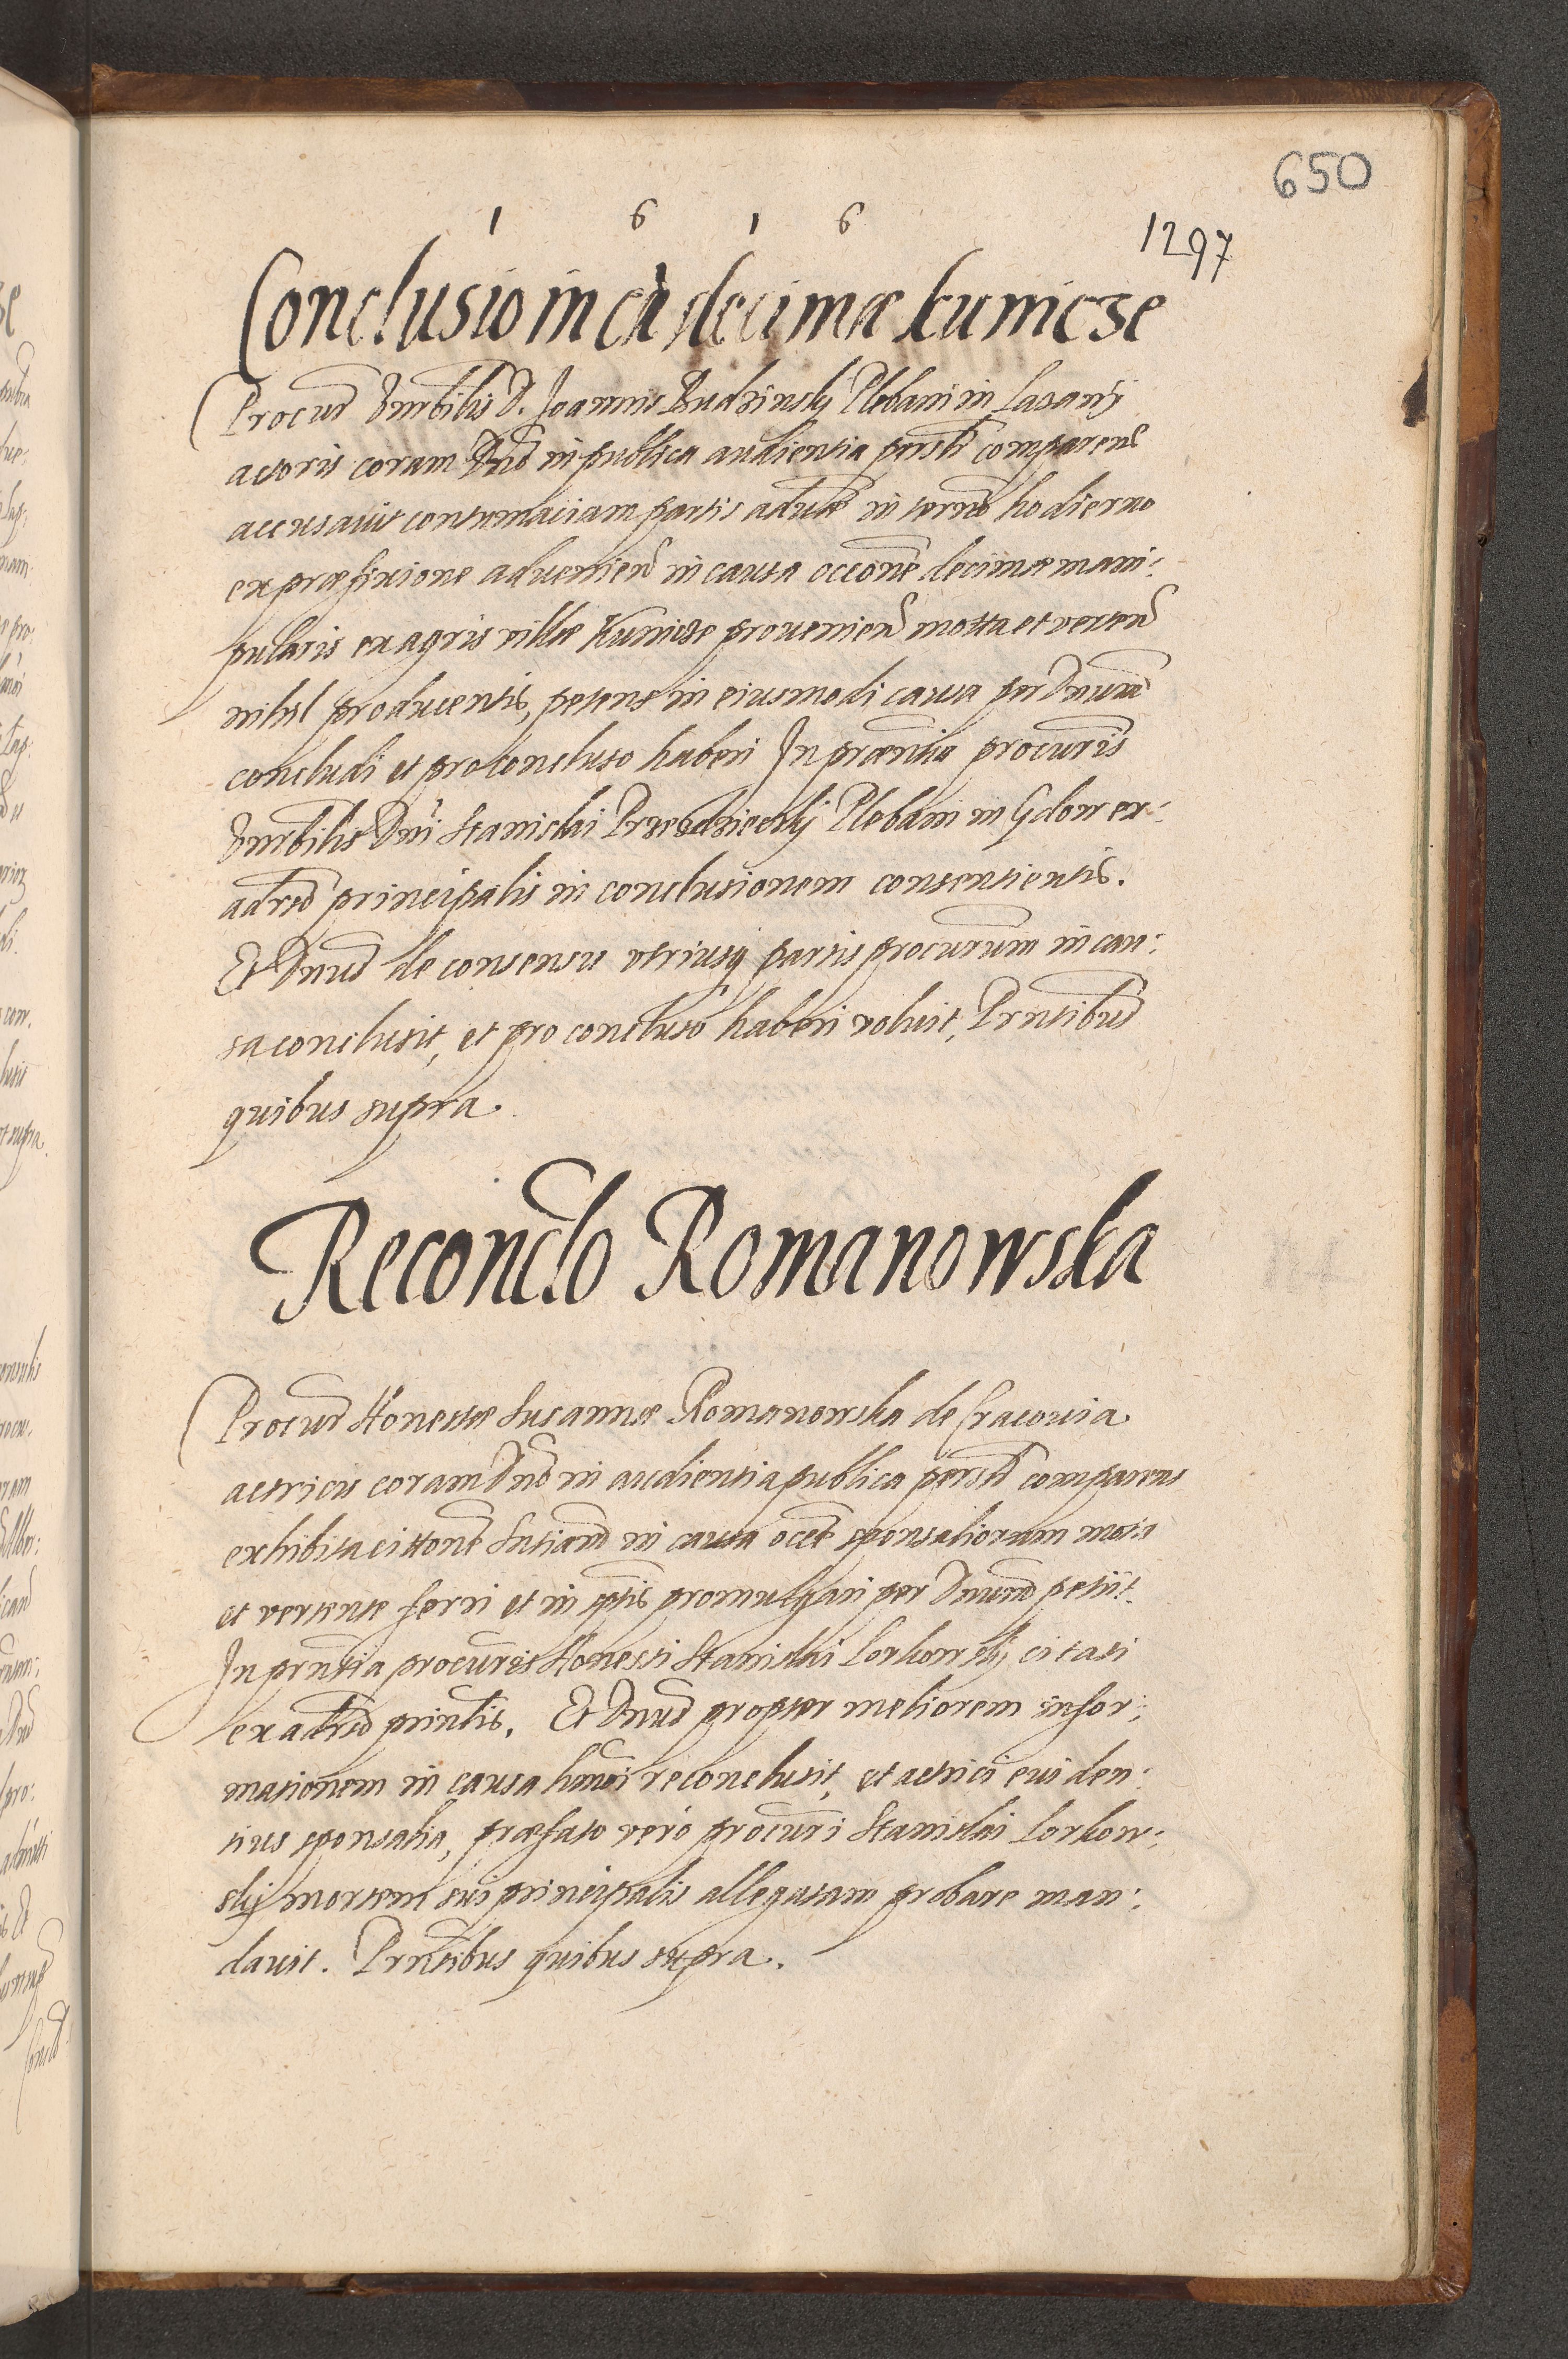 650
1 6 1 6
1297
Conclusio in cã decimæ Kunicze
Procur Vnrbilis D. Joannis Budzinskj Plebani in Lazanj
actoris coram Dno in publica audientia psnlr comparens
accusauit contumaciam partis aduersæ in termino hodierno
ex præfixione aduenien in causa occone decimæ mani:
pularis ex agris villæ Kunicze prouenien motta et verten
nihil producentis, petens in eiusmodi causa per Dnum
concludi et pro concluso haberi In præntia procuris
Vnrbilis Dni Stanislai Plebani in Gdow ex:
aduerso principalis in conclusionem consentientis.
Et Dnus de consensu vtriusq partis procurum in cau:
sa conclusit, et pro concluso haberi voluit, Prntibus
quibus supra.
Reconclo Romanowska
Procur Honestæ Susannæ Romanowska de Cracouia
actricis coram Dno in audientia publica psnlr comparens
exhibita cittone Sntiam in causa occne sponsaliorum mota
et vertente ferri et in sptis promulgari per Dnum petiit.
In prntia procuris Honesti Stanislai Lorkowskj citati
ex adrso prinlis. Et Dnus propter meliorem infor:
mationem in causa hmoi reconclusit, et actrici euiden:
tius sponsalia, præfato vero procuri Stanislai Lorkow:
skj mortem sui principalis allegatam probare man:
dauit. Prntibus quibus supra.